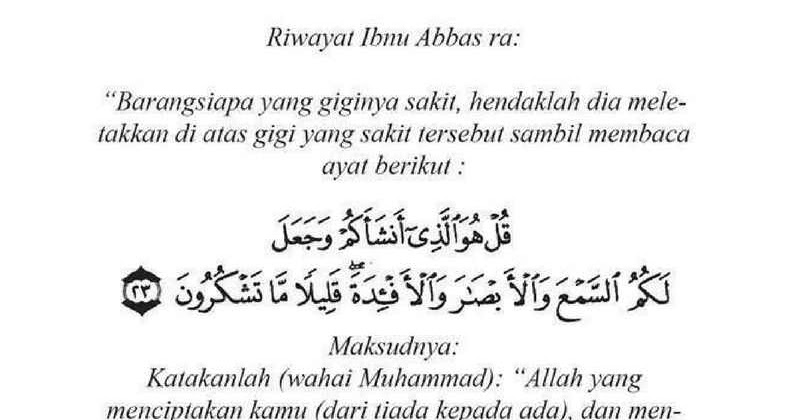 Riwayat Ibnu Abbas ra:
“Barangsiapa yang giginya sakit, hendaklah dia mele-
takkan di atas gigi yang sakit tersebut sambil membaca
ayat berikut :
قُلْ هُوَ ٱلَّذِىٓ أَنشَأَكُمْ وَجَعَلَ
لَكُمُ ٱلسَّمْعَ وَٱلْأَبْصَـٰرَ وَٱلْأَفْـِٔدَةَ ۖ قَلِيلًا مَّا تَشْكُرُونَ ٢٣
Maksudnya:
Katakanlah (wahai Muhammad): “Allah yang
menciptakan kamu (dari tiada kepada ada), dan men-